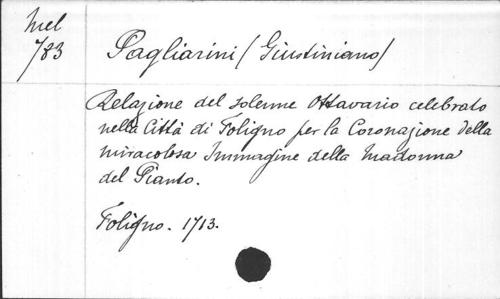 Mel
783
Pagliarini (Giustiniano)
Relazione del solenne Ottavario celebrato
nella Città di Foligno per la Coronazione della
miracolosa Immagine della Madonna
del Pianto.
Foligno. 1713.